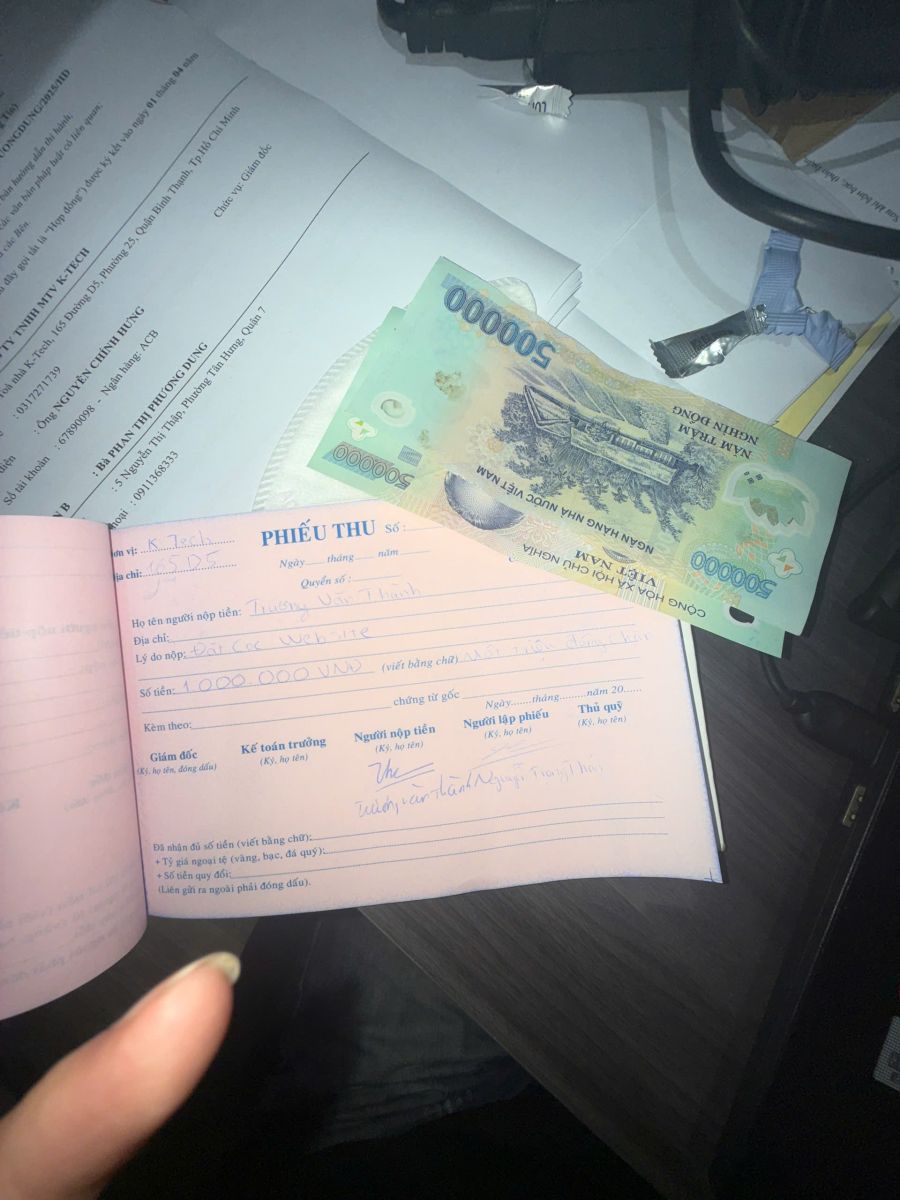 ƯƠNGDUNG/2025/HĐ
bản hướng dẫn thi hành;
các văn bản pháp luật có liên quan;
các Bên.
đây gọi tắt là "Hợp đồng") được ký kết vào ngày 01 tháng 04 năm
TY TNHH MTV K-TECH
nhà K-Tech, 165 Đường D5, Phường 25, Quận Bình Thạnh, Tp.Hồ Chí Minh
: 0317271739
diện : Ông NGUYỄN CHÍNH HƯNG Chức vụ: Giám đốc
Số tài khoản : 67890098 - Ngân hàng: ACB
N B : Bà PHAN THỊ PHƯƠNG DUNG
: 5 Nguyễn Thị Thập, Phường Tân Hưng, Quận 7
hoại : 0911368333
500000
NĂM TRĂM
NGHÌN ĐỒNG
500000
NGÂN HÀNG NHÀ NƯỚC VIỆT NAM
500000
CỘNG HÒA XÃ HỘI CHỦ NGHĨA
VIỆT NAM
Đơn vị: K Tech
Địa chỉ: 165 D5
PHIẾU THU Số:
Ngày tháng năm
Quyển số :
Họ tên người nộp tiền: Trương Văn Thành
Địa chỉ:
Lý do nộp: Đặt Cọc Website
Số tiền: 1 000.000 VNĐ (viết bằng chữ) Một triệu đồng chẵn
Kèm theo: chứng từ gốc
Ngày tháng năm 20
Giám đốc Kế toán trưởng Người nộp tiền Người lập phiếu Thủ quỹ
(Ký, họ tên, đóng dấu) (Ký, họ tên) (Ký, họ tên) (Ký, họ tên) (Ký, họ tên)
văn Thành Nguyễn Trọng
Đã nhận đủ số tiền (viết bằng chữ):
+ Tỷ giá ngoại tệ (vàng, bạc, đá quý):
+ Số tiền quy đổi:
(Liên gửi ra ngoài phải đóng dấu).